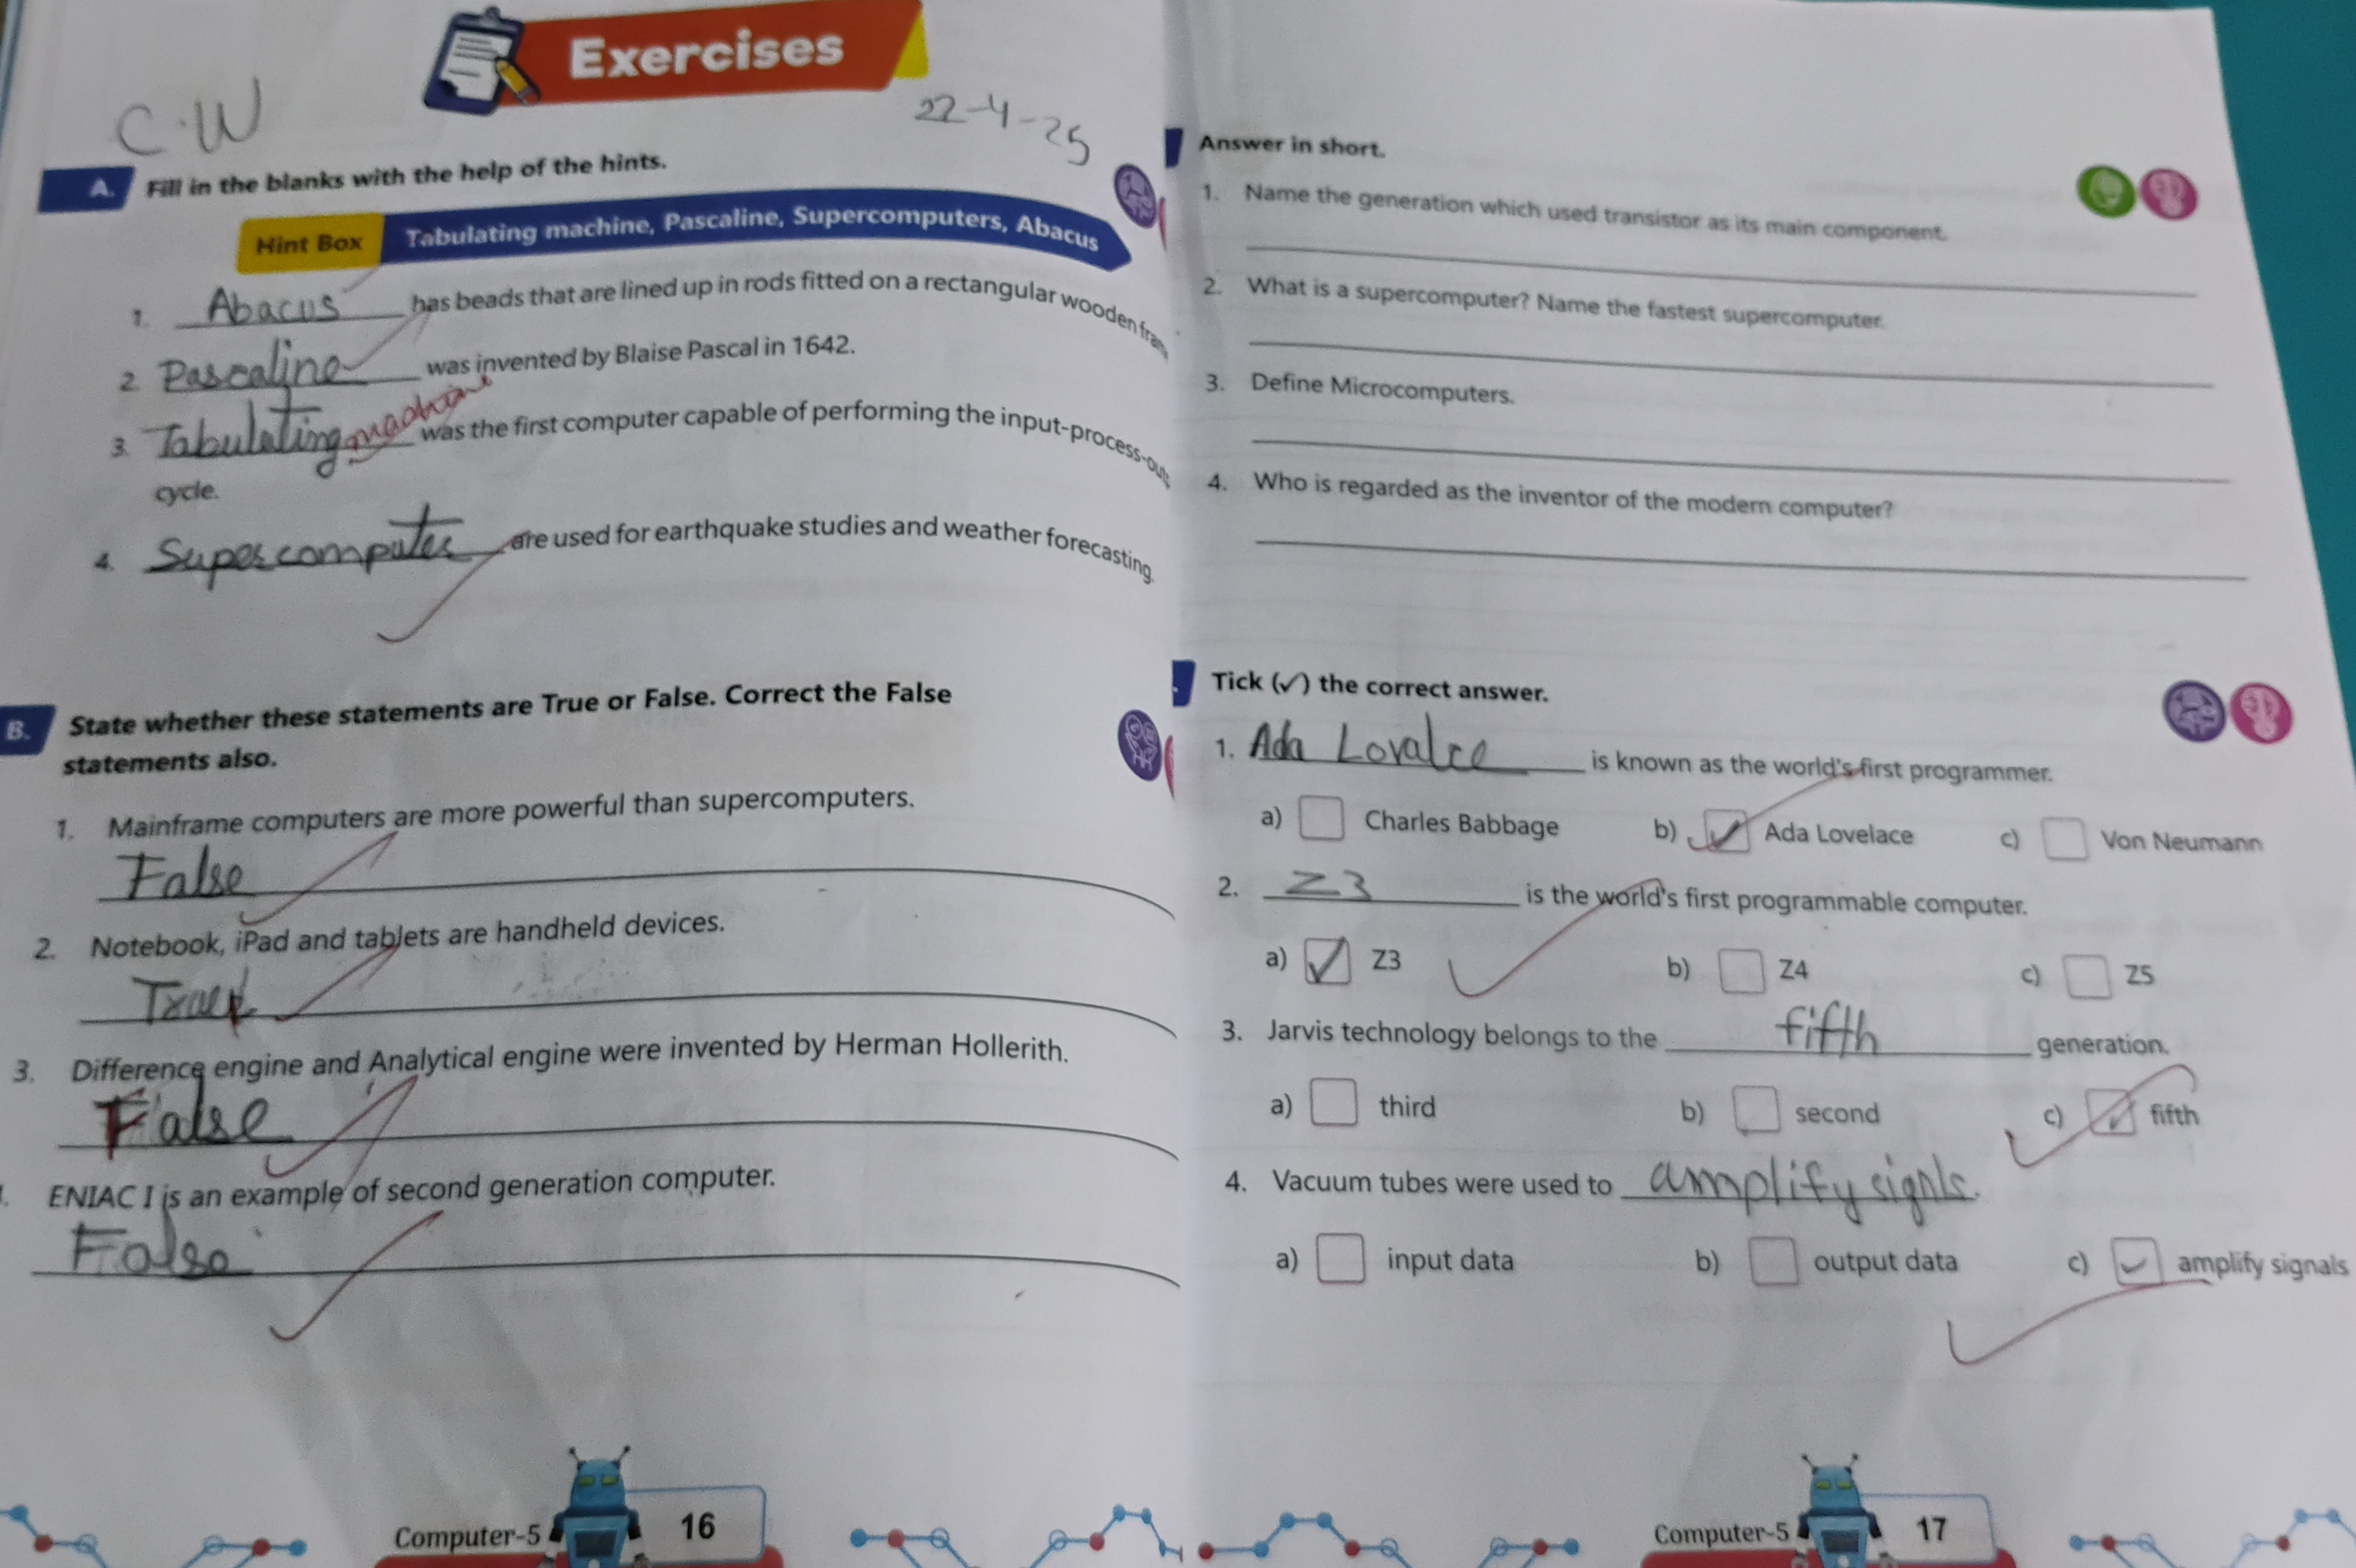 Exercises
C.W
22-4-25
A. Fill in the blanks with the help of the hints.
Hint Box Tabulating machine, Pascaline, Supercomputers, Abacus
1. Abacus has beads that are lined up in rods fitted on a rectangular wooden fram
2. Pascaline was invented by Blaise Pascal in 1642.
3. Tabulating machine was the first computer capable of performing the input-process-out
cycle.
4. Supercomputer are used for earthquake studies and weather forecasting.
B. State whether these statements are True or False. Correct the False
statements also.
1. Mainframe computers are more powerful than supercomputers.
False
2. Notebook, iPad and tablets are handheld devices.
True
3. Difference engine and Analytical engine were invented by Herman Hollerith.
False
ENIAC I is an example of second generation computer.
False
Computer-5 16
Answer in short.
1. Name the generation which used transistor as its main component.
2. What is a supercomputer? Name the fastest supercomputer.
3. Define Microcomputers.
4. Who is regarded as the inventor of the modern computer?
Tick (✓) the correct answer.
1. Ada Lovalce is known as the world's first programmer.
a) Charles Babbage b) ✓ Ada Lovelace c) Von Neumann
2. Z3 is the world's first programmable computer.
a) ✓ Z3 b) Z4 c) Z5
3. Jarvis technology belongs to the fifth generation.
a) third b) second c) ✓ fifth
4. Vacuum tubes were used to amplify signls.
a) input data b) output data c) ✓ amplify signals
Computer-5 17